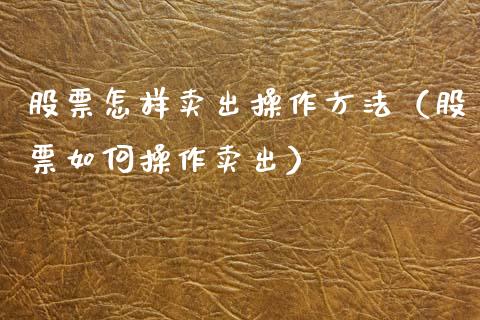 股票怎样卖出操作方法（股
票如何操作卖出）